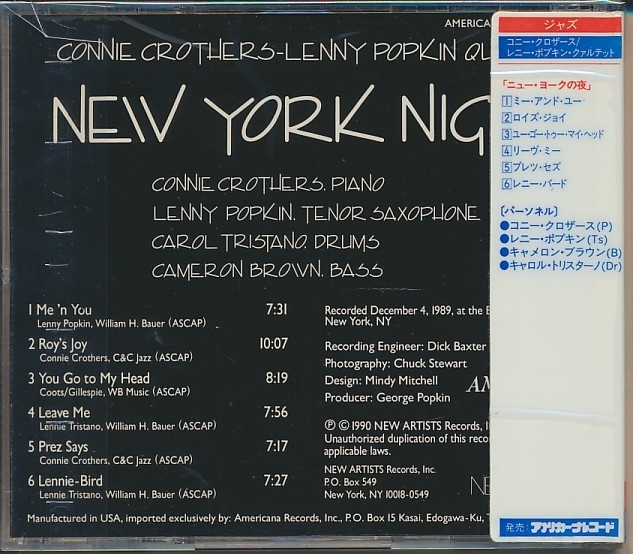 AMERICA
CONNIE CROTHERS-LENNY POPKIN QU
NEW YORK NIG
CONNIE CROTHERS, PIANO
LENNY POPKIN, TENOR SAXOPHONE
CAROL TRISTANO, DRUMS
CAMERON BROWN, BASS
1 Me 'n You 7:31
Lenny Popkin, William H. Bauer (ASCAP)
2 Roy's Joy 10:07
Connie Crothers, C&C Jazz (ASCAP)
3 You Go to My Head 8:19
Coots/Gillespie, WB Music (ASCAP)
4 Leave Me 7:56
Lennie Tristano, William H. Bauer (ASCAP)
5 Prez Says 7:17
Connie Crothers, C&C Jazz (ASCAP)
6 Lennie-Bird 7:27
Lennie Tristano, William H. Bauer (ASCAP)
Recorded December 4, 1989, at the B
New York, NY
Recording Engineer: Dick Baxter
Photography: Chuck Stewart
Design: Mindy Mitchell
Producer: George Popkin
℗ © 1990 NEW ARTISTS Records, I
Unauthorized duplication of this reco
applicable laws.
NEW ARTISTS Records, Inc.
P.O. Box 549
New York, NY 10018-0549
Manufactured in USA, imported exclusively by: Americana Records, Inc., P.O. Box 15 Kasai, Edogawa-Ku, T
ジャズ
コニー・クロザース/
レニー・ポプキン・クァルテット
「ニュー・ヨークの夜」
1 ミー・アンド・ユー
2 ロイズ・ジョイ
3 ユー・ゴー・トゥー・マイ・ヘッド
4 リーヴ・ミー
5 プレツ・セズ
6 レニー・バード
〔パーソネル〕
●コニー・クロザース(P)
●レニー・ポプキン(Ts)
●キャメロン・ブラウン(B)
●キャロル・トリスターノ(Dr)
発売：アメリカーナレコード